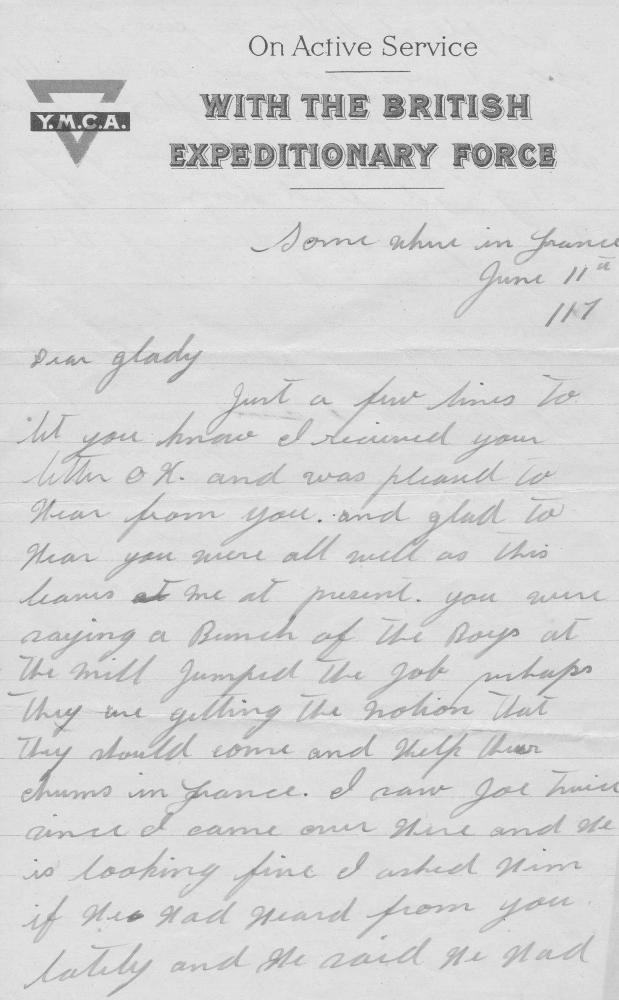 On Active Service
WITH THE BRITISH
Y.M.C.A.
EXPEDITIONARY FORCE
Some where in France
June 11th
117
Dear Glady
Just a few lines to
let you know I recieved your
letter O K. and was pleased to
Hear from you. and glad to
Hear you were all well as this
leaves at me at present. you were
saying a Bunch of the Boys at
the mill Jumped the Job perhaps
they are getting the notion that
they should come and Help their
chums in France. I saw Joe twice
since I came over Here and He
is looking fine I asked Him
if He Had Heard from you
lately and He said He Had